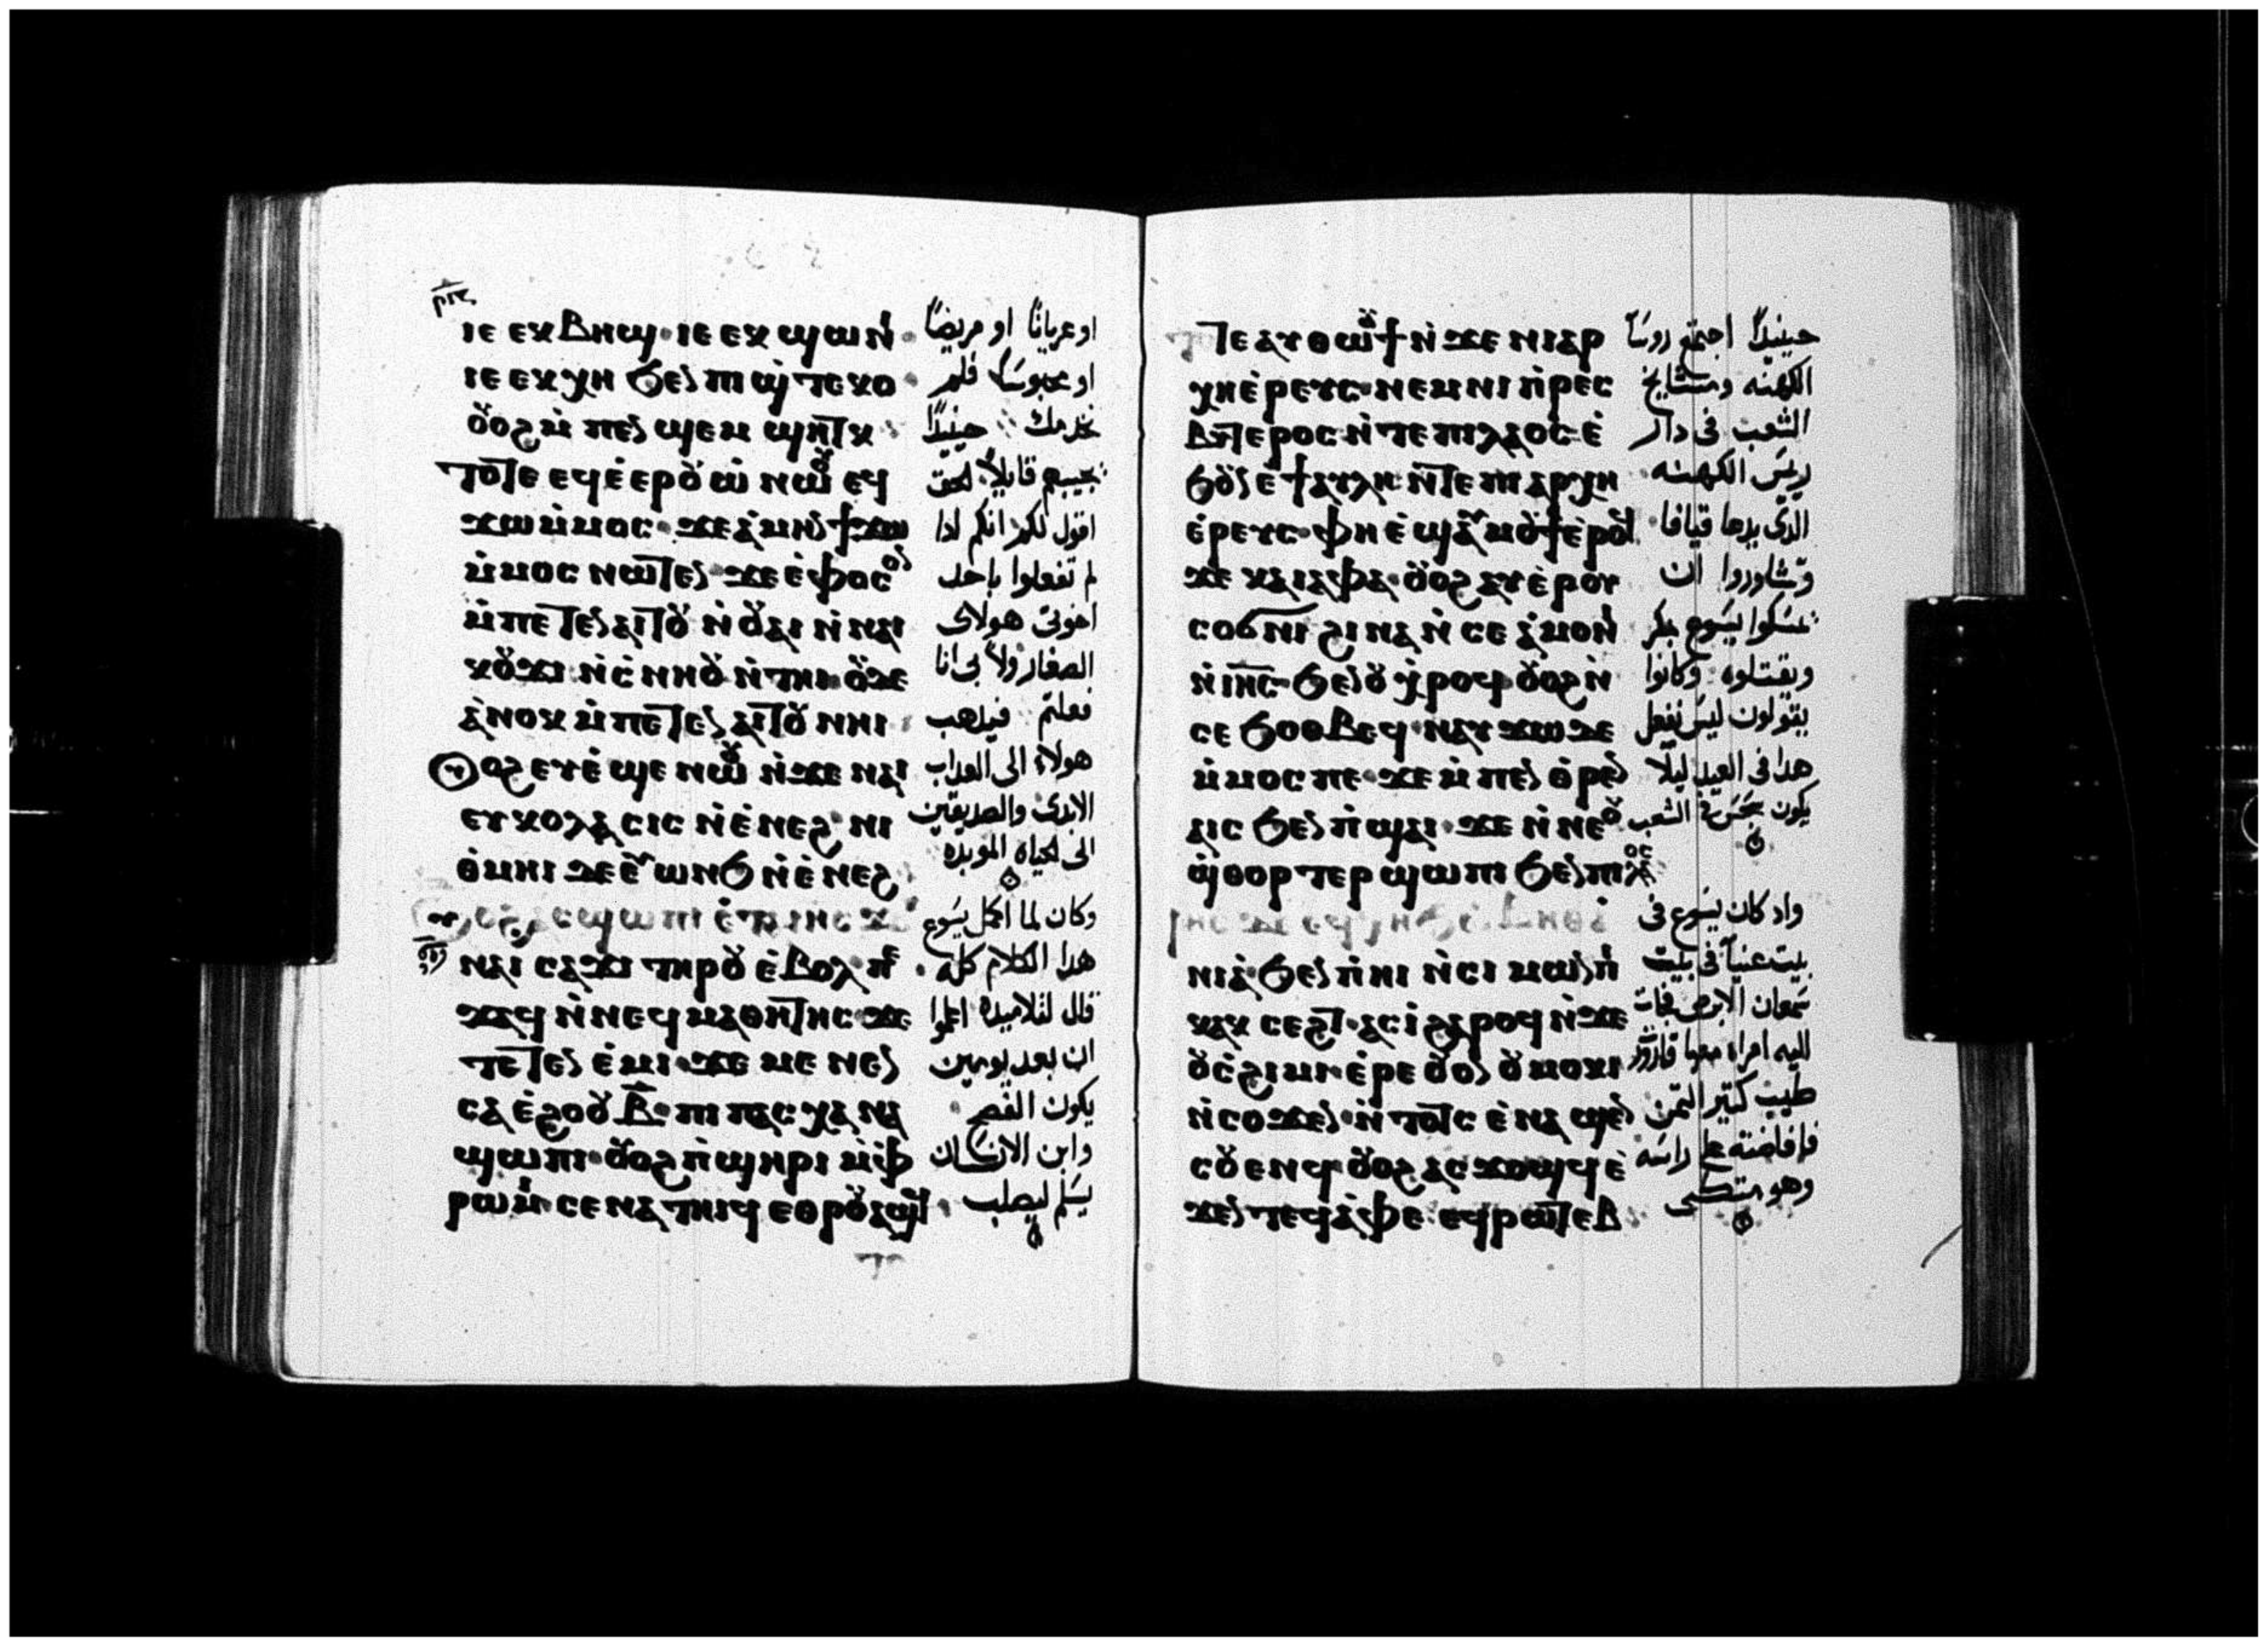 ⲓⲉ ⲉⲕⲃⲏϣ · ⲓⲉ ⲉⲕϣⲱⲛⲓ ·
ⲓⲉ ⲉⲕⲭⲏ ϧⲉⲛ ⲡⲓϣ̀ⲧⲉⲕⲟ ·
ⲟⲩⲟϩ ⲙ̀ⲡⲉⲛϣⲉⲙϣⲏⲧⲕ
ⲧⲟⲧⲉ ⲉϥⲉ̀ⲉⲣⲟⲩⲱ̀ ⲛⲱⲟⲩ ⲉϥ
ϫⲱ ⲙ̀ⲙⲟⲥ · ϫⲉ ⲁ̀ⲙⲏⲛ ϯϫⲱ
ⲙ̀ⲙⲟⲥ ⲛⲱⲧⲉⲛ · ϫⲉ ⲉ̀ⲫⲟⲥⲟⲛ
ⲙ̀ⲡⲉⲧⲉⲛⲁⲓⲧⲟⲩ ⲛ̀ⲟⲩⲁⲓ ⲛ̀ⲛⲁⲓ
ⲕⲟⲩϫⲓ ⲛ̀ⲥ̀ⲛⲏⲟⲩ ⲛ̀ⲧⲏⲓ · ⲟⲩⲇⲉ
ⲁ̀ⲛⲟⲕ ⲙ̀ⲡⲉⲧⲉⲛⲁⲓⲧⲟⲩ ⲛⲏⲓ
ⲟⲩⲟϩ ⲉⲩⲉ̀ϣⲉ ⲛⲱⲟⲩ ⲛ̀ϫⲉ ⲛⲁⲓ
ⲉⲩⲕⲟⲗⲁⲥⲓⲥ ⲛ̀ⲉ̀ⲛⲉϩ · ⲛⲓ
ⲑ̀ⲙⲏⲓ ⲇⲉ ⲉⲩⲱⲛϧ ⲛ̀ⲉ̀ⲛⲉϩ
ⲁⲥϣⲱⲡⲓ ⲉ̀ⲧⲁ ⲓⲏⲥ
ⲛⲁⲓ ⲥⲁϫⲓ ⲧⲏⲣⲟⲩ ⲉ̀ⲃⲟⲗ ⲡⲉ
ϫⲁϥ ⲛ̀ⲛⲉϥⲙⲁⲑⲏⲧⲏⲥ · ϫⲉ
ⲧⲉⲧⲉⲛⲉ̀ⲙⲓ · ϫⲉ ⲙⲉⲛⲉⲛ
ⲥⲁ ⲉ̀ϩⲟⲟⲩ ⲃ̅ · ⲡⲓⲡⲁⲥⲭⲁ ⲛⲁ
ϣⲱⲡⲓ · ⲟⲩⲟϩ ⲡ̀ϣⲏⲣⲓ ⲙ̀ⲫ̀
ⲣⲱⲙⲓ ⲥⲉⲛⲁⲧⲏⲓϥ ⲉⲑⲣⲟⲩⲁϣϥ
او عريانًا او مريضًا
او محبوسًا فلم
نخدمك حينيدًا
يجيبهم قايلًا الحق
اقول لكم انكم اذا
لم تفعلوا باحد
اخوتي هولاي
الصغار ولا بى انا
فعلتم فيدهب
هولاء الى العداب
الابدى والصديقين
الى الحياه الموبده
وكان لما اكمل يسوع
هدا الكلام كله
قال لتلاميده اعلموا
ان بعد يومين
يكون الفصح
وابن الانسان
يسلم ليصلب
ⲧⲟⲧⲉ ⲁⲩⲑⲱⲟⲩϯ ⲛ̀ϫⲉ ⲛⲓⲁⲣ
ⲭⲏⲉ̀ⲣⲉⲩⲥ · ⲛⲉⲙ ⲛⲓⲡ̀ⲣⲉⲥ
ⲃⲩⲧⲉⲣⲟⲥ ⲛ̀ⲧⲉ ⲡⲓⲗⲁⲟⲥ · ⲉ̀
ϧⲟⲩⲛ ⲉ̀ϯⲁⲩⲗⲏ ⲛ̀ⲧⲉ ⲡⲓⲁⲣⲭⲏ
ⲉ̀ⲣⲉⲩⲥ · ⲫⲏ ⲉ̀ϣⲁⲩⲙⲟⲩϯ ⲉ̀ⲣⲟϥ
ϫⲉ ⲕⲁⲓⲁⲫⲁ · ⲟⲩⲟϩ ⲁⲩⲉ̀ⲣⲟⲩ
ⲥⲟϭⲛⲓ ϩⲓⲛⲁ ⲛ̀ⲥⲉⲁ̀ⲙⲟⲛⲓ
ⲛ̀ⲓⲏⲥ · ϧⲉⲛ ⲟⲩⲭ̀ⲣⲟϥ ⲟⲩⲟϩ ⲛ̀
ⲥⲉϧⲟⲑⲃⲉϥ · ⲛⲁⲩϫⲱ ⲇⲉ
ⲙ̀ⲙⲟⲥ ⲡⲉ · ϫⲉ ⲙ̀ⲡⲉⲛⲑ̀ⲣⲉⲛ
ⲁⲓⲥ ϧⲉⲛ ⲡ̀ϣⲁⲓ · ϫⲉ ⲛ̀ⲛⲉⲟⲩ
ϣ̀ⲑⲟⲣⲧⲉⲣ ϣⲱⲡⲓ ϧⲉⲛ ⲡⲓⲗⲁⲟⲥ
ⲓⲏⲥ ⲇⲉ ⲉϥⲭⲏ ϧⲉⲛ ⲃⲏⲑⲁ
ⲛⲓⲁ̀ · ϧⲉⲛ ⲡ̀ⲏⲓ ⲛ̀ⲥⲓⲙⲱⲛ ⲡⲓ
ⲕⲁⲕⲥⲉϩⲧ · ⲁⲥⲓ̀ ϩⲁⲣⲟϥ ⲛ̀ϫⲉ
ⲟⲩⲥ̀ϩⲓⲙⲓ · ⲉ̀ⲣⲉ ⲟⲩⲟⲛ ⲟⲩⲙⲟⲕⲓ
ⲛ̀ⲥⲟϫⲉⲛ · ⲛ̀ⲧⲟⲧⲥ ⲉ̀ⲛⲁϣⲉⲛ
ⲥⲟⲩⲉⲛϥ ⲟⲩⲟϩ ⲁⲥϫⲟϣϥ ⲉ̀
ϫⲉⲛ ⲧⲉϥⲁ̀ⲫⲉ · ⲉϥⲣⲱⲧⲉⲃ
حينيدًا اجتمع روسا
الكهنه ومشايخ
الشعب فى دار
ريس الكهنه
الدى يدعا قيافا
وتشاوروا ان
يمسكوا يسوع بمكر
ويقتلوه وكانوا
يقولون ليس نفعل
هدا فى العيد ليلًا
يكون سجس فى الشعب
واد كان يسوع فى
بيت عنيا فى بيت
سمعان الابرص فجات
اليه امراه معها قارورة
طيب كتير التمن
فافاضته على راسه
وهو متكى